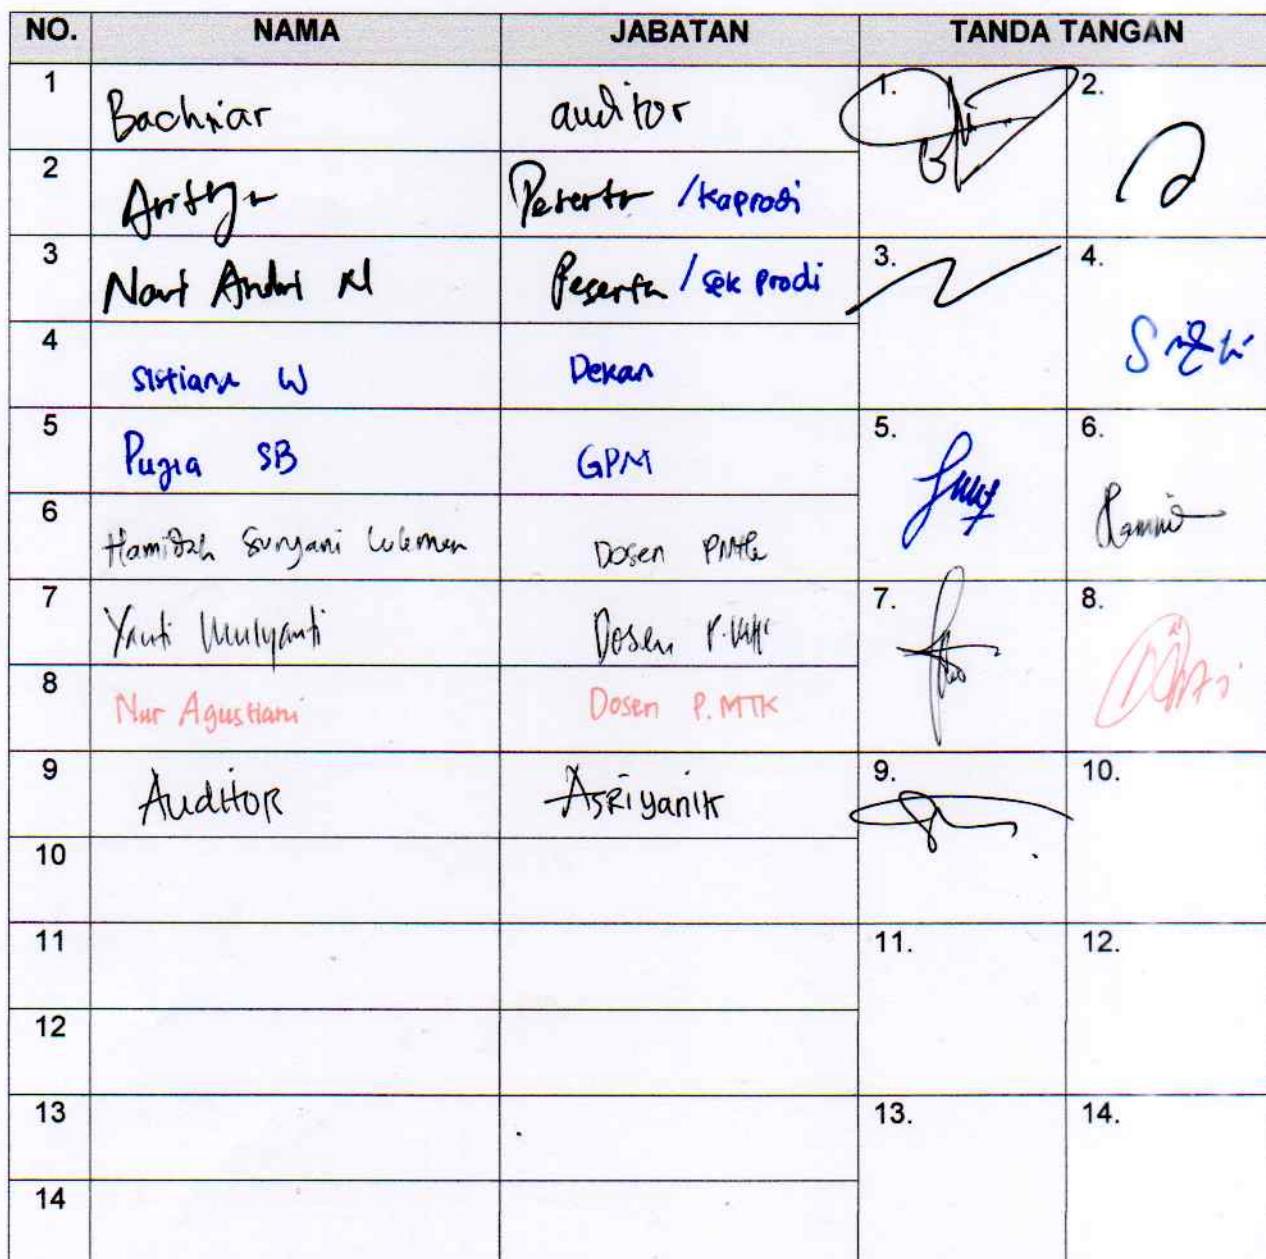 NO. NAMA JABATAN TANDA TANGAN
1 Bachtiar auditor 1. 2.
2 Aritsya Peserta /kaprodi
3 Novi Andri N Peserta /sek prodi 3. 4.
4 Sistiana W Dekan
5 Pujia SB GPM 5. 6.
6 Hamidah Suryani Dosen
7 Yanti Mulyanti Dosen 7. 8.
8 Nur Agustiani Dosen P.MTK
9 Auditor Asriyanik 9. 10.
10
11 11. 12.
12
13 13. 14.
14